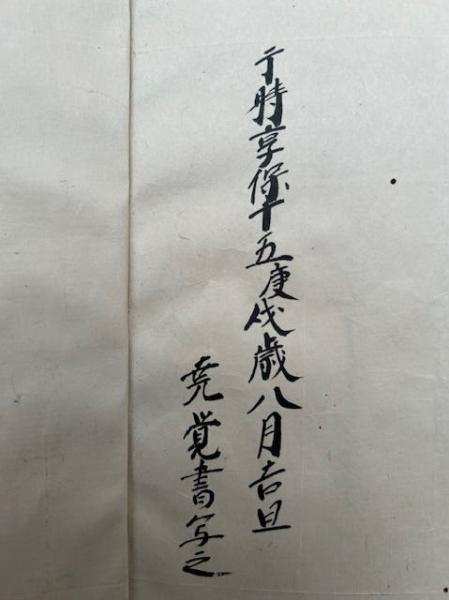 于時享保十五庚戌歳八月吉旦
尭覚書写之